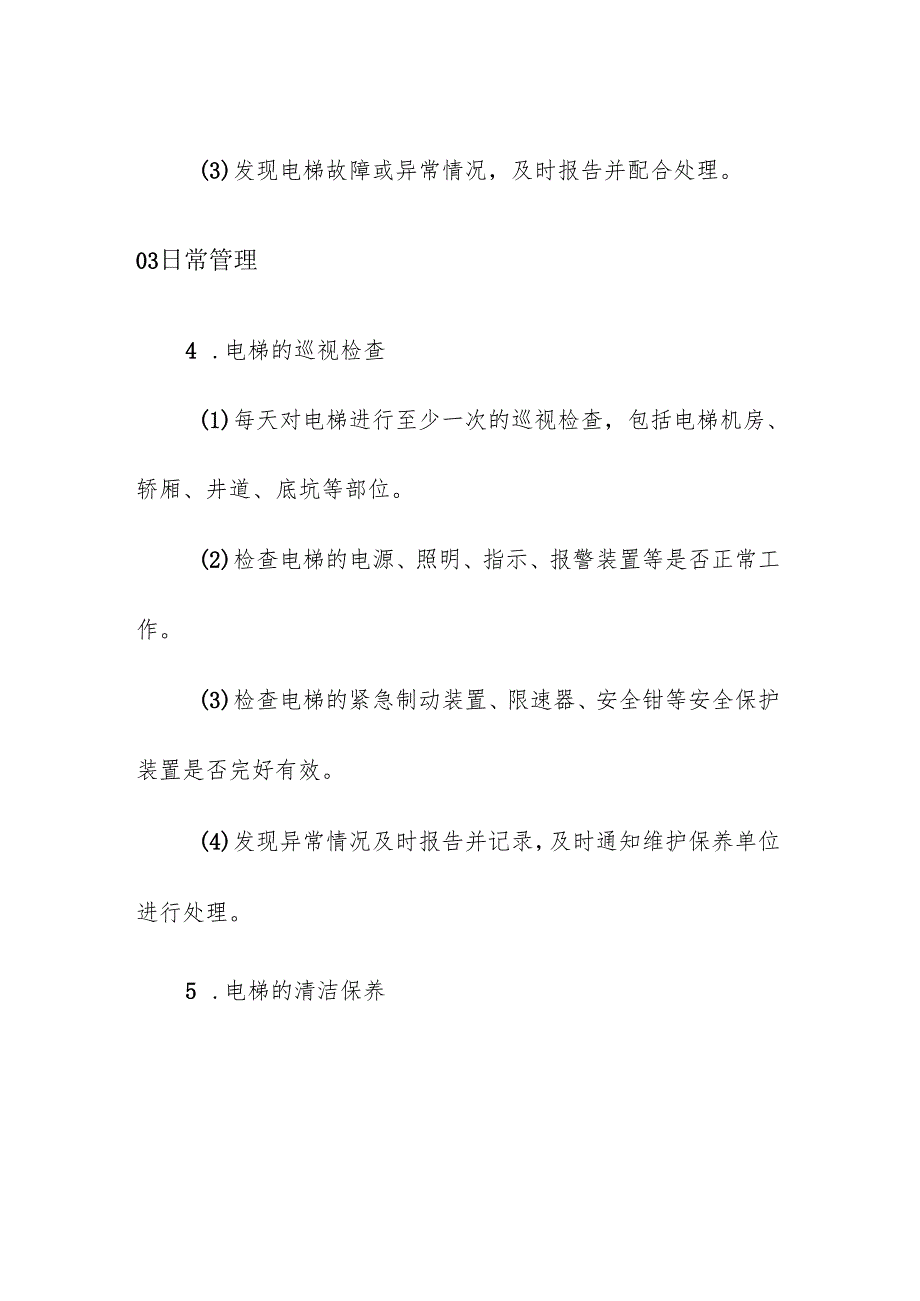 (3)发现电梯故障或异常情况，及时报告并配合处理。
03日常管理
4 .电梯的巡视检查
(1)每天对电梯进行至少一次的巡视检查，包括电梯机房、
轿厢、井道、底坑等部位。
(2)检查电梯的电源、照明、指示、报警装置等是否正常工
作。
(3)检查电梯的紧急制动装置、限速器、安全钳等安全保护
装置是否完好有效。
(4)发现异常情况及时报告并记录，及时通知维护保养单位
进行处理。
5 .电梯的清洁保养